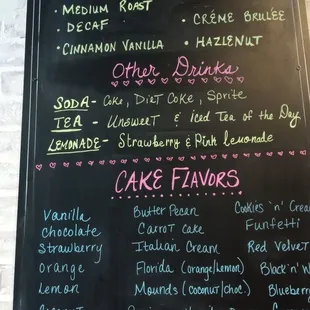 • Medium Roast
• Créme Brulée
• Decaf
• Cinnamon Vanilla
• Hazlenut
Other Drinks
Soda - Coke, Diet Coke, Sprite
Tea - Unsweet & iced Tea of the Day
Lemonade - Strawberry & Pink lemonade
Cake Flavors
Vanilla Butter Pecan Cookies 'n' Crea
Chocolate Carrot Cake Funfetti
Strawberry Italian Cream Red Velvet
Orange Florida (orange/lemon) Black'n'W
Lemon Mounds (coconut/choc.) Blueberry